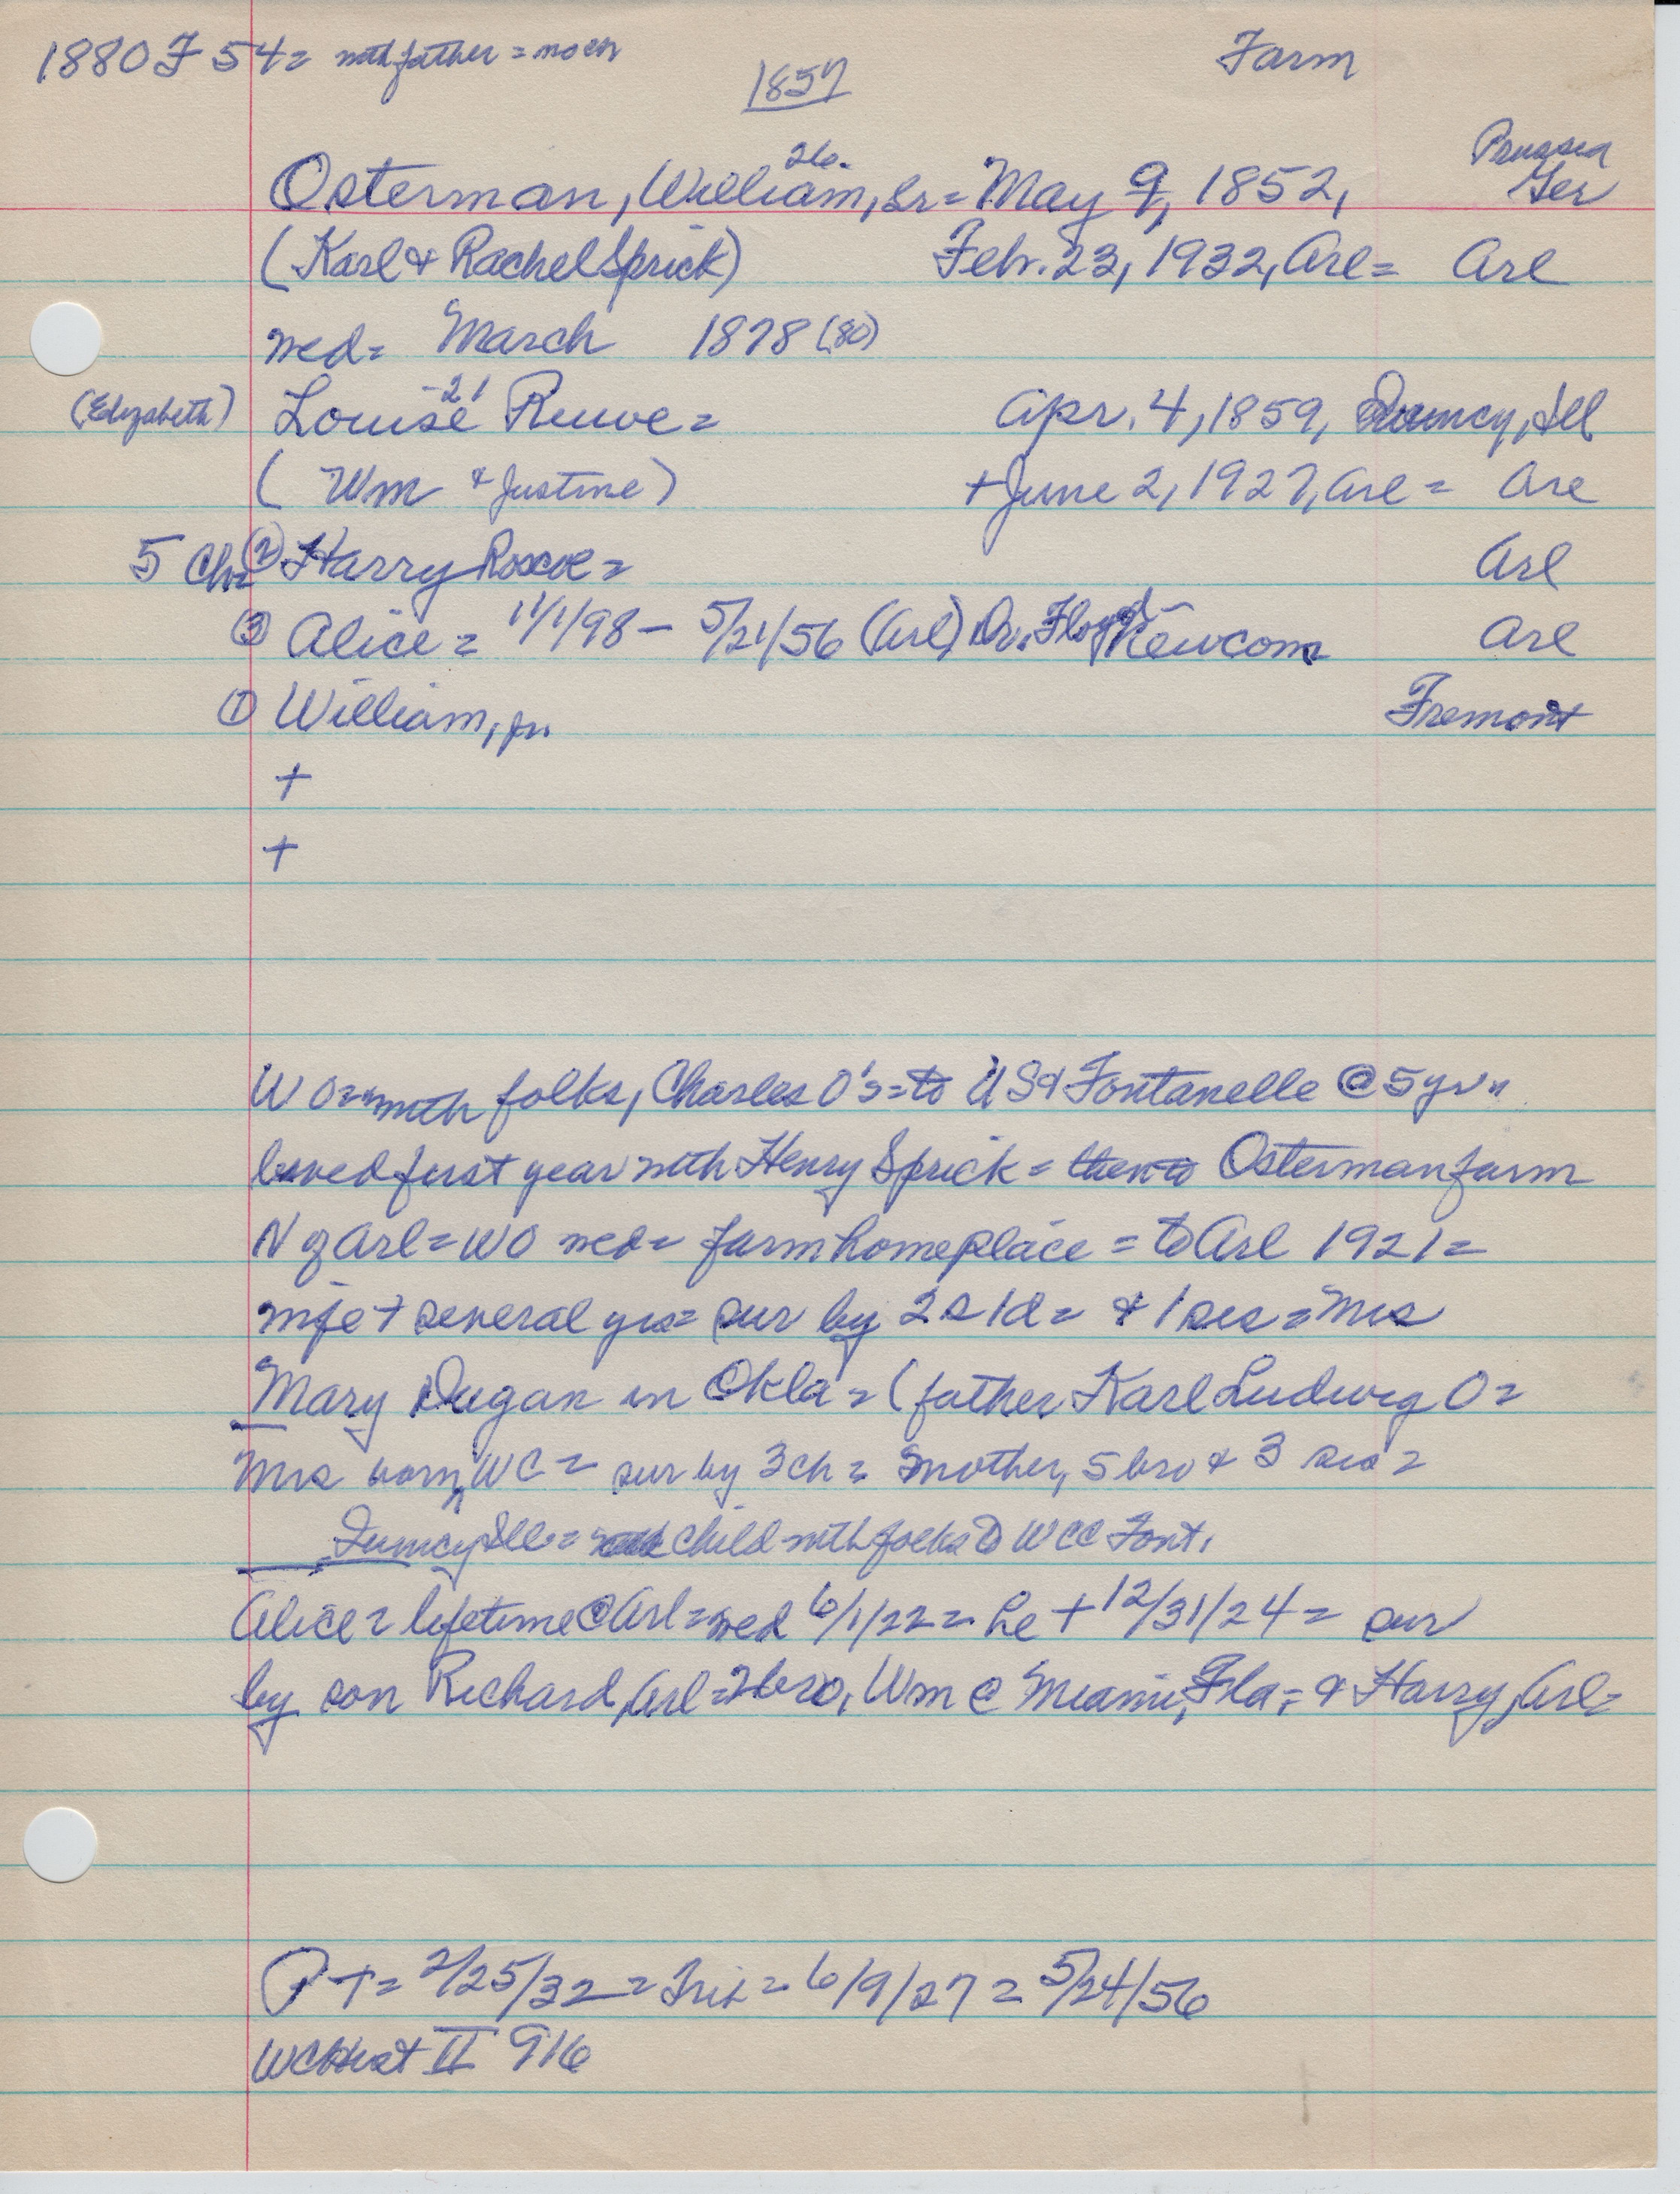 1880 F 54 = with father = no ch
Farm
1857
Prussia
26.
Osterman, William, Sr = May 9, 1852, Ger
(Karl & Rachel Sprick) Feb. 23, 1932, Arl = Arl
wed = March 1878 (80)
-21
(Elizabeth) Louise Ruwe = Apr. 4, 1859, Quincy, Ill
( Wm & Justine) + June 2, 1927, Arl = Arl
5 Ch = ② Harry Roscoe = Arl
③ Alice = 11/1/98 - 5/21/56 (Arl) Dr. Floyd Newcom Arl
① William, jr. Fremont
+
+
WO = with folks, Charles O's = to US & Fontanelle @ 5 yrs
lived first year with Henry Sprick = then to Osterman farm
N of Arl = WO wed = farm home place = to Arl 1921 =
wife + several yrs = sur by 2 s 1 d = & 1 sis = Mrs
Mary Dugan in Okla = (father Karl Ludwig O =
Mrs born WC = sur by 3 ch = mother, 5 bro & 3 sis =
Quincy Ill = child with folks to WCC Font.
Alice = lifetime @ Arl = wed 6/1/22 = he + 12/31/24 = sur
by son Richard, Arl = 2 bro, Wm @ Miami, Fla, = & Harry, Arl =
PT = 2/25/32 = Trib = 6/9/27 = 5/24/56
WC Hist II 916